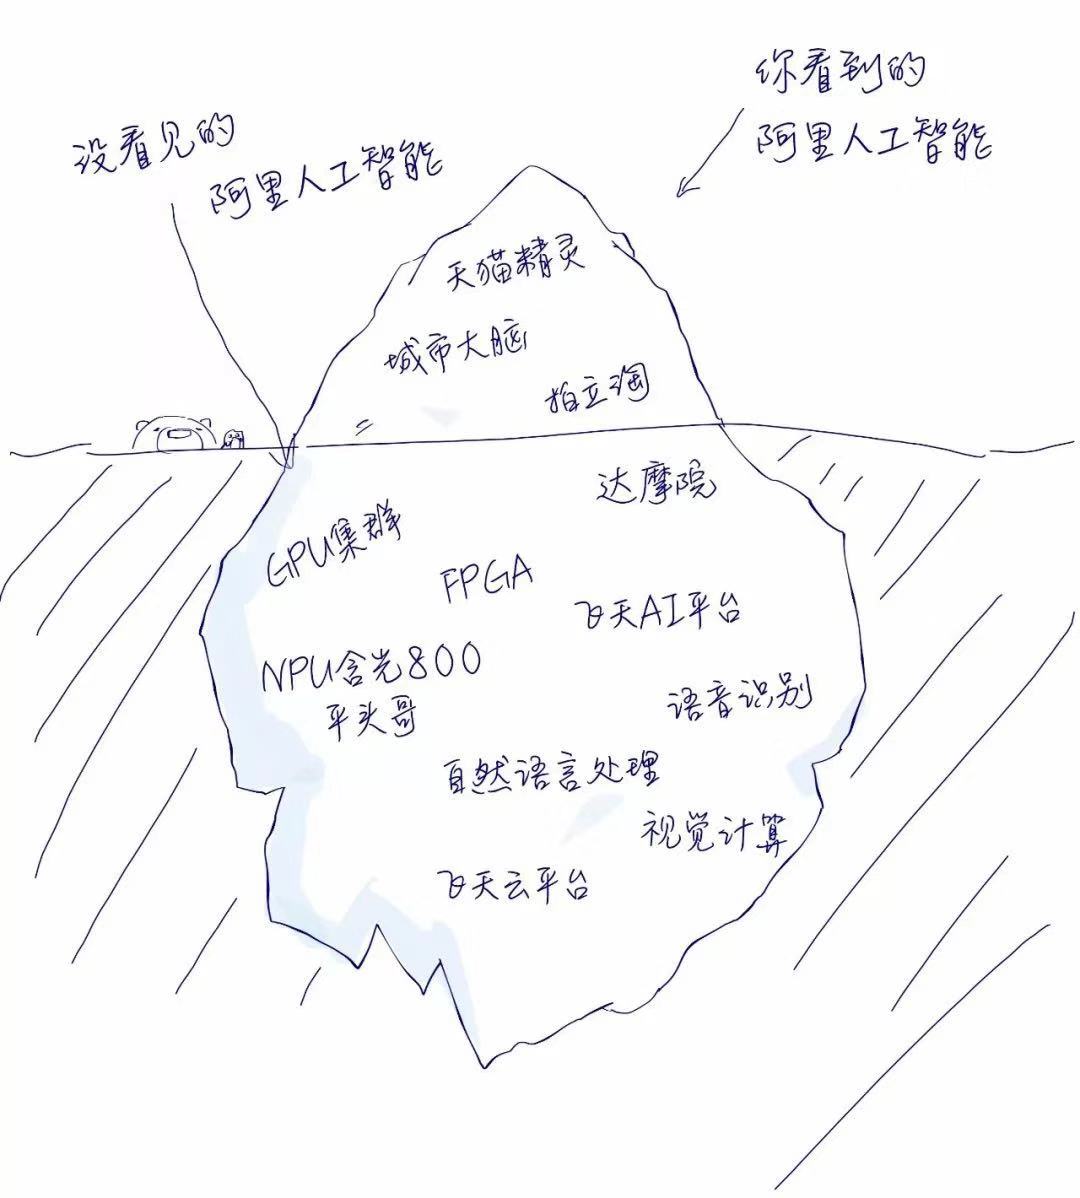 没看见的
阿里人工智能
你看到的
阿里人工智能
天猫精灵
城市大脑
拍立淘
达摩院
GPU集群
FPGA
飞天AI平台
NPU含光800
平头哥
语音识别
自然语言处理
视觉计算
飞天云平台